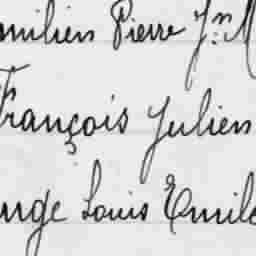 milien Pierre Jn M
François Julien
ange Louis Emile